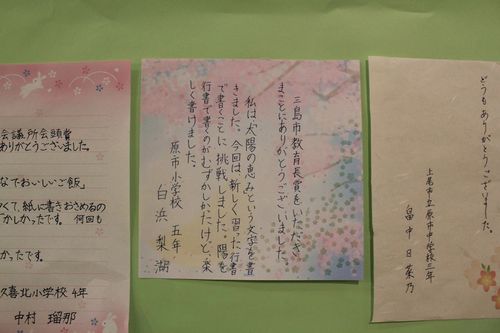 会議所会頭賞
ありがとうございました。
なでおいしいご飯」
くて、紙に書きおさめるの
かしかったです。 何回も
かったです。
久喜北小学校 4年
中村 瑠那
三島市教育長賞をいただき、
まことにありがとうございました。
私は「太陽の恵み」という文字を書
きました。今回は新しく習った行書
で書くことに挑戦しました。陽を
行書で書くのがむずかしかたけど、楽
しく書けました。
原市小学校 五年
白浜 梨湖
どうもありがとうございました。
上尾市立原市中学校三年
畠中日菜乃